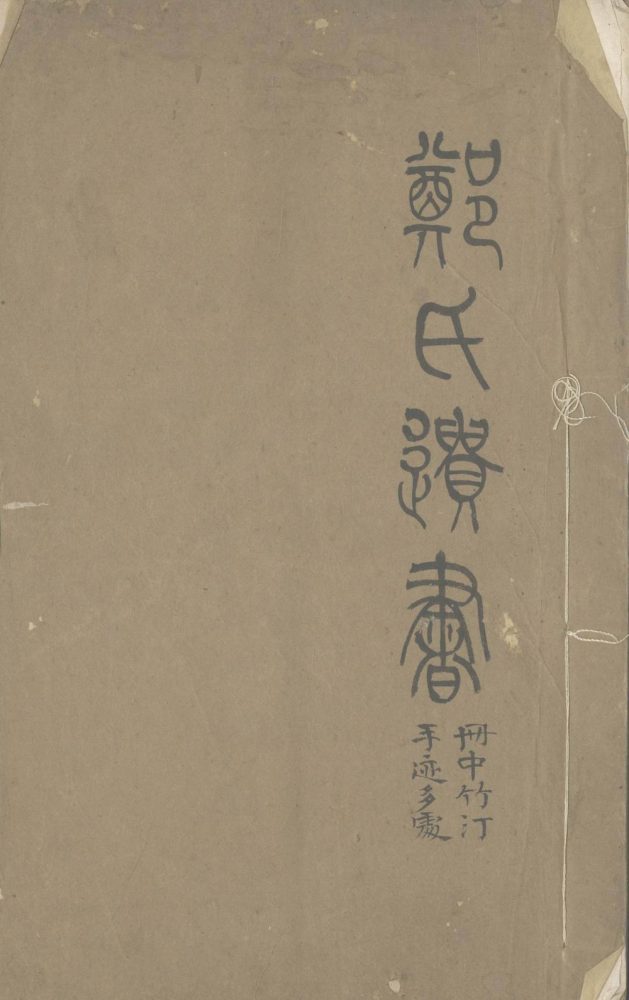 鄭氏遺書
冊中竹汀
手迹多處